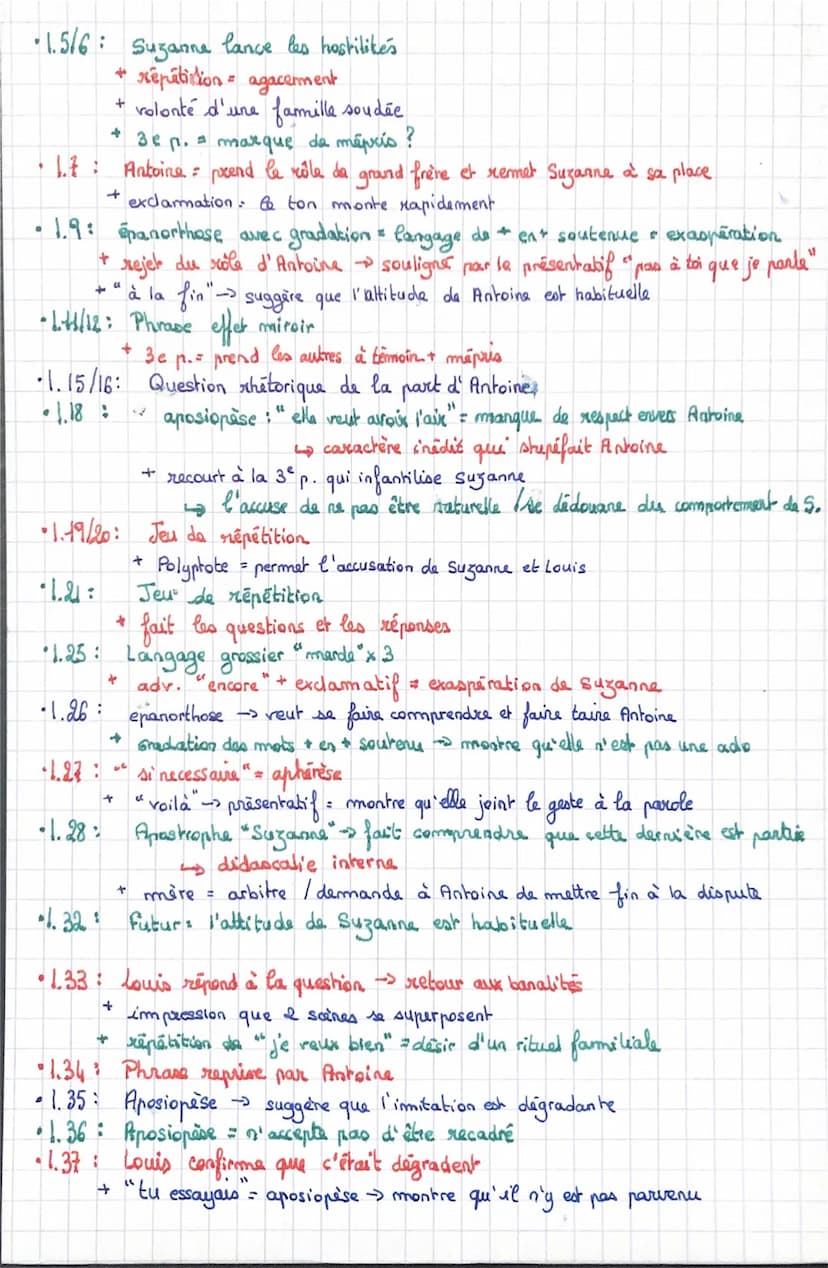 • l.5/6 : Suzanne lance les hostilités
+ répétition = agacement
+ volonté d'une famille soudée
+ 3e p. = marque de mépris ?
• l.7 : Antoine = prend le rôle de grand frère et remet Suzanne à sa place
+ exclamation = le ton monte rapidement
• l.9 : épanorthose avec gradation = langage de + en + soutenue = exaspération
+ rejet du rôle d'Antoine → souligné par le présentatif "pas à toi que je parle"
+ "à la fin" → suggère que l'attitude de Antoine est habituelle
• l.11/12 : Phrase effet miroir
+ 3e p. = prend les autres à témoin + mépris
• l.15/16 : Question rhétorique de la part d'Antoine
• l.18 : aposiopèse : "elle veut avoir l'air" = manque de respect envers Antoine
↳ caractère inédit qui stupéfait Antoine
+ recourt à la 3e p. qui infantilise Suzanne
↳ l'accuse de ne pas être naturelle / se dédouane du comportement de S.
• l.19/20 : Jeu de répétition
+ Polyptote = permet l'accusation de Suzanne et Louis
• l.21 : Jeu de répétition
+ fait les questions et les réponses
• l.25 : Langage grossier "merde" x 3
+ adv. "encore" + exclamatif = exaspération de Suzanne
• l.26 : epanorthose → veut se faire comprendre et faire taire Antoine
+ Gradation des mots + en + soutenu → montre qu'elle n'est pas une ado
• l.27 : "si necessaire" = aphérèse
+ "voilà" → présentatif = montre qu'elle joint le geste à la parole
• l.28 : Apostrophe "Suzanne" → fait comprendre que cette dernière est partie
↳ didascalie interne
+ mère = arbitre / demande à Antoine de mettre fin à la dispute
• l.32 : Futur = l'attitude de Suzanne est habituelle
• l.33 : Louis répond à la question → retour aux banalités
+ impression que 2 scènes se superposent
+ répétition de "je veux bien" = désir d'un rituel familiale
• l.34 : Phrase reprise par Antoine
• l.35 : Aposiopèse → suggère que l'imitation est dégradante
• l.36 : Aposiopèse = n'accepte pas d'être recadré
• l.37 : Louis confirme que c'était dégradent
+ "tu essayais" = aposiopèse → montre qu'il n'y est pas parvenu